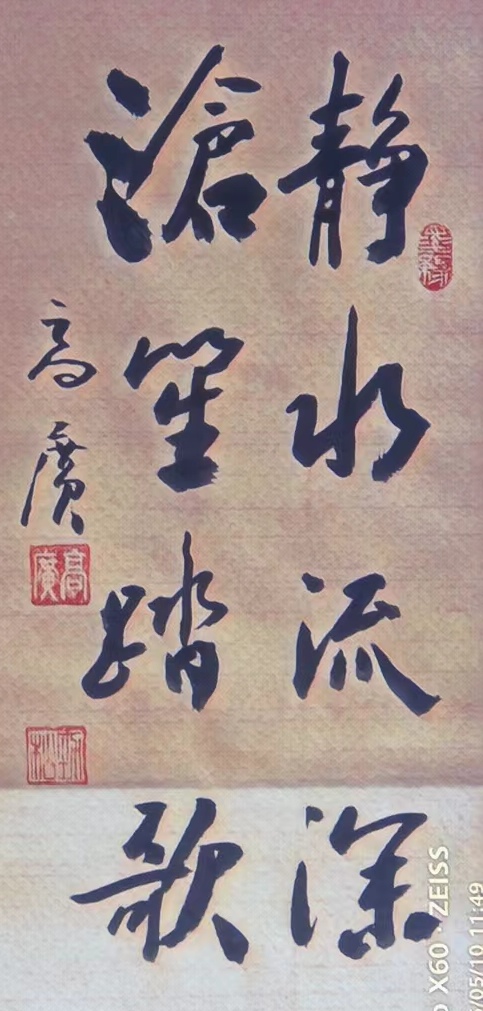 静水流深
滄笙踏歌
高廣
高廣
X60 · ZEISS
/05/19 11:49